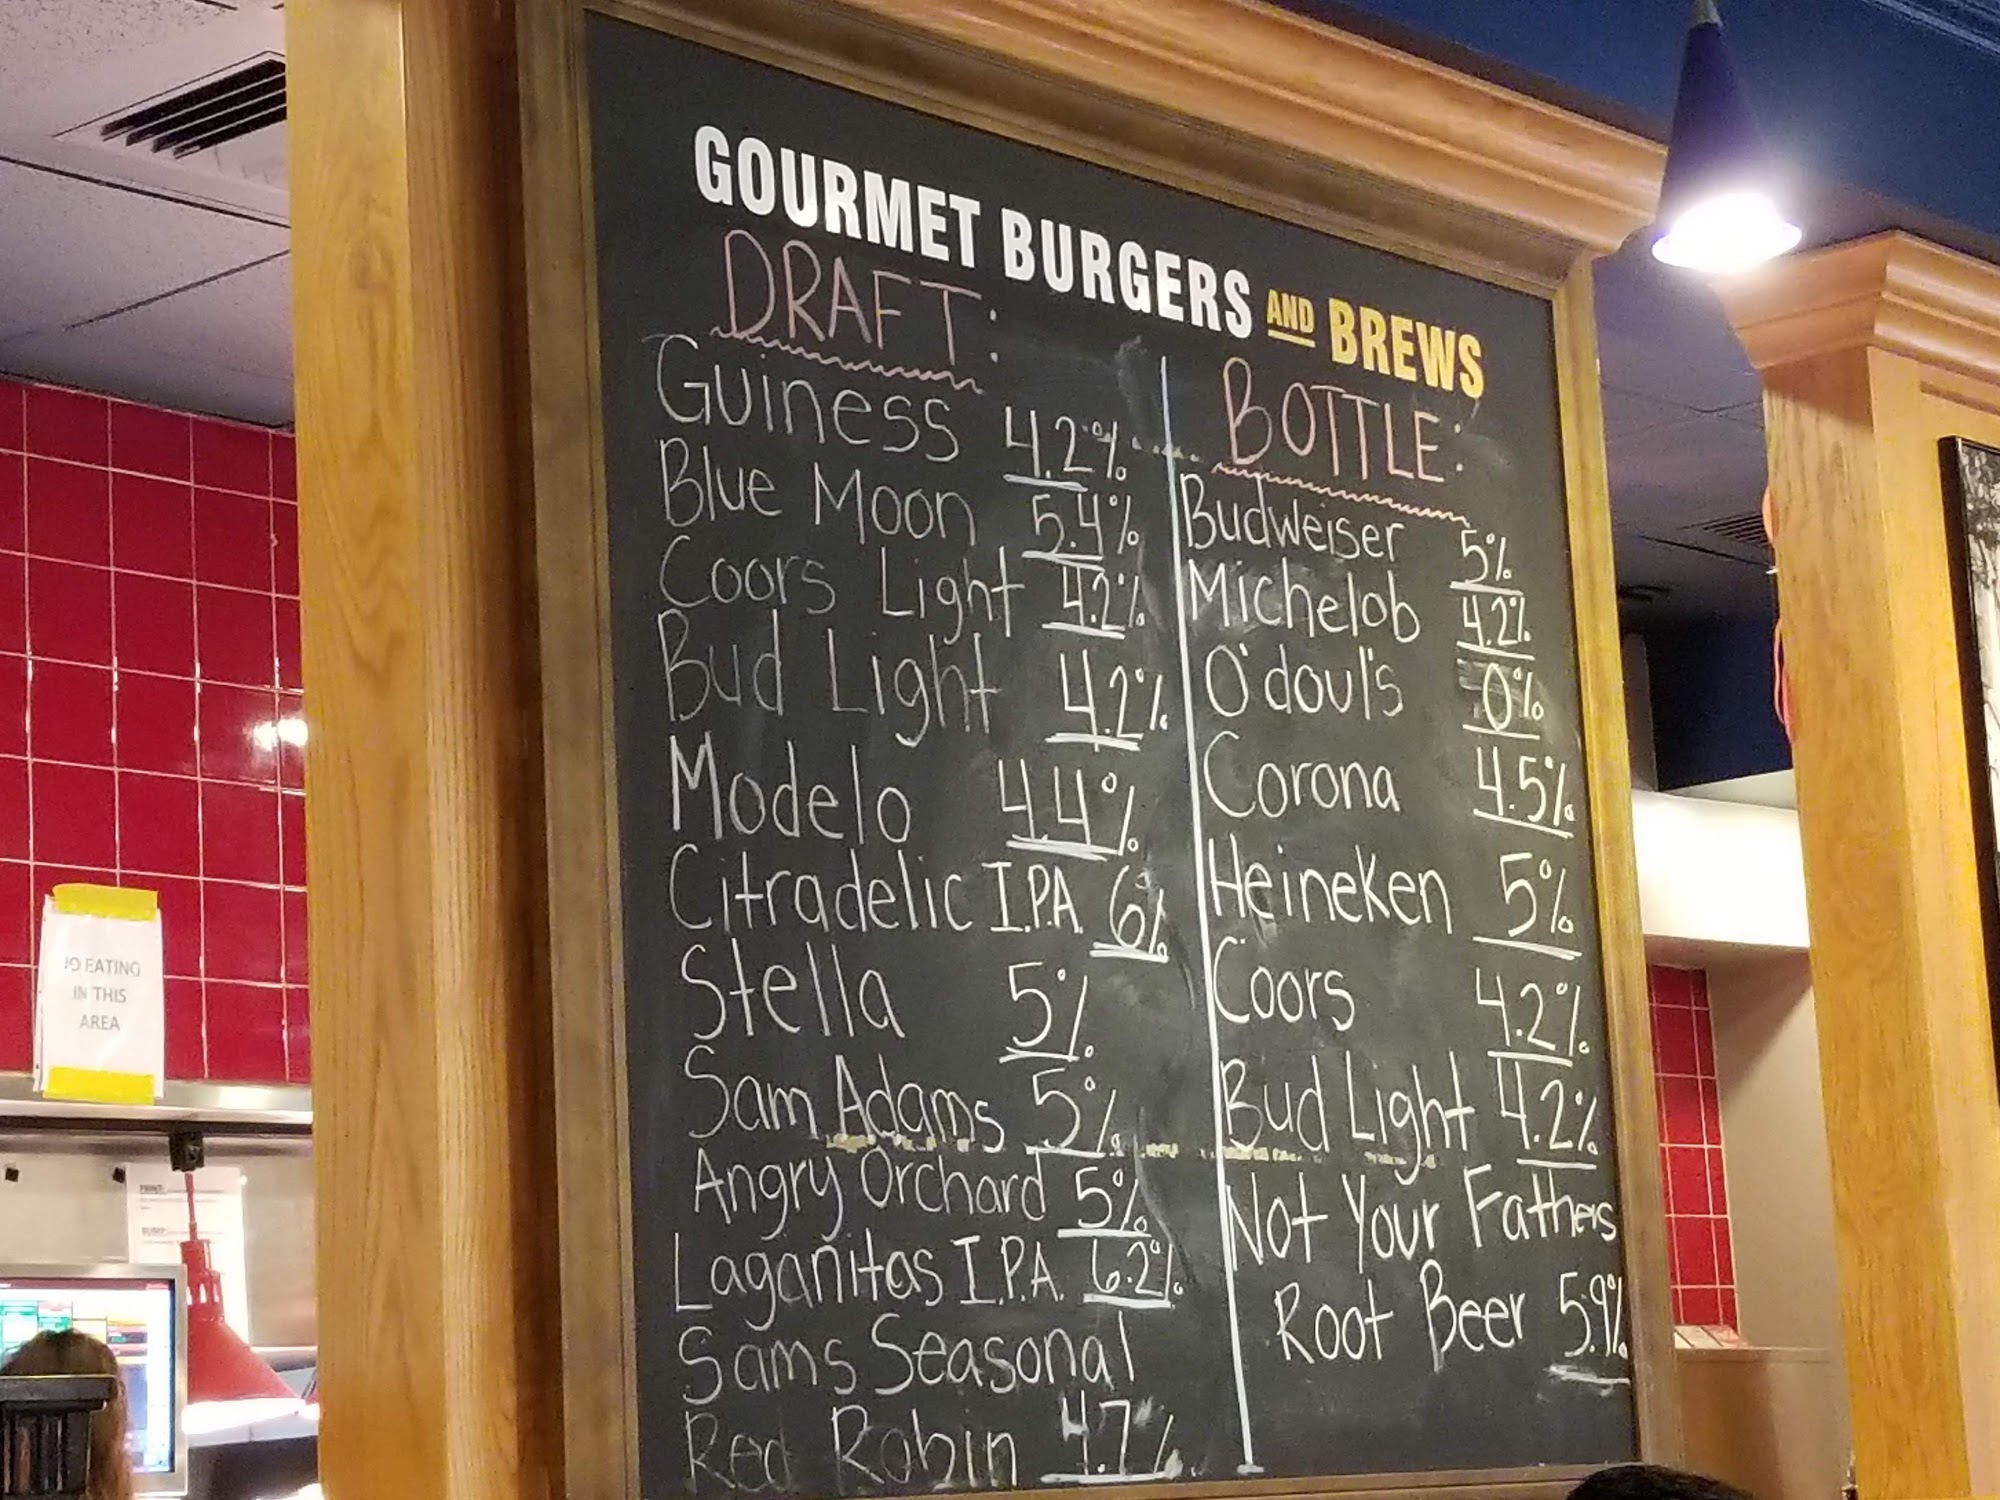 GOURMET BURGERS AND BREWS
DRAFT:
Guiness 4.2%
Blue Moon 5.4%
Coors Light 4.2%
Bud Light 4.2%
Modelo 4.4%
Citradelic I.P.A. 6%
Stella 5%
Sam Adams 5%
Angry Orchard 5%
Lagañitas I.P.A. 6.2%
Sams Seasonal
Red Robin 4.7%
BOTTLE:
Budweiser 5%
Michelob 4.2%
O'doul's 0%
Corona 4.5%
Heineken 5%
Coors 4.2%
Bud Light 4.2%
Not Your Fathers
Root Beer 5.9%
NO EATING
IN THIS
AREA